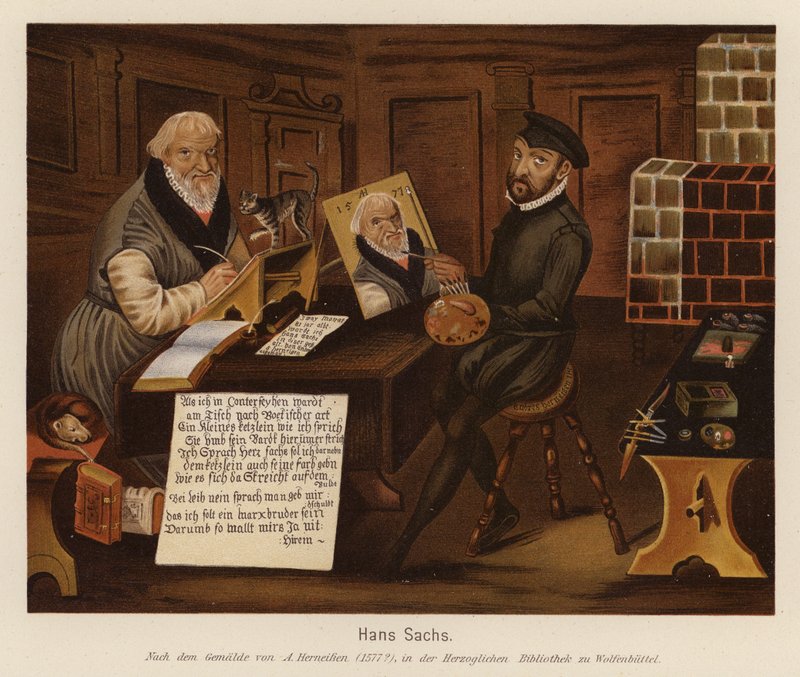 15 AH 77
Zway Monat
81 jar alt
wardt ich
Hans Sachs
in diser gestalt
Als ich in Conterfeyhen wardt
am Tisch nach Poetischer art
Ein Kleines ketzlein wie ich sprich
Sie vmb sein Bardt hierumer strich
Ich Sprach Herr sachs sol ich darneben
dem ketzlein auch seine farb gebn
Wie es sich da Streicht auf dem
Bulbt
Bei leib nein sprach man geb mir
schuldt
das ich solt ein marxbruder sein
Darumb so mallt mirs Ja nit
: Hirem ~
Hans Sachs.
Nach dem Gemälde von A. Herneißen (1577?), in der Herzoglichen Bibliothek zu Wolfenbüttel.